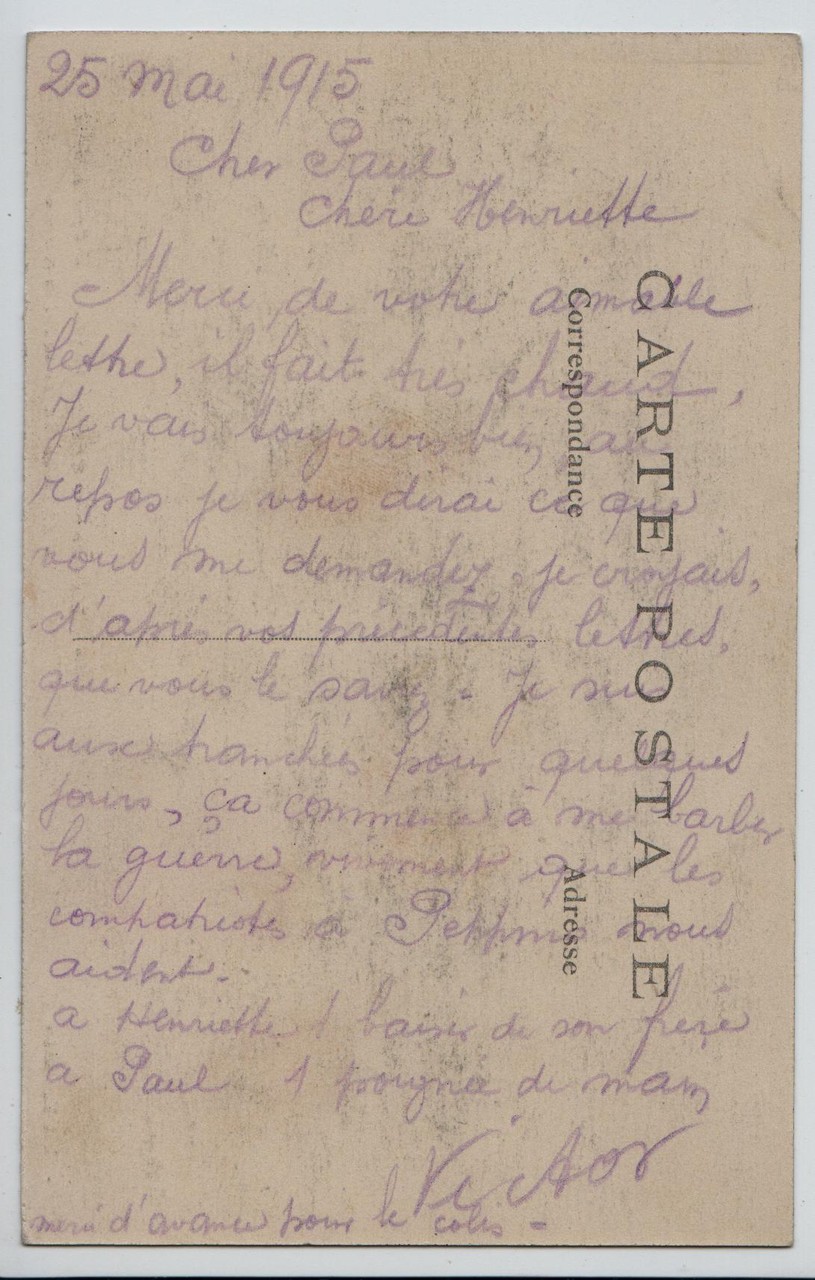 25 mai 1915
Cher Paul
Chère Henriette
Merci de votre aimable
lettre, il fait très chaud,
Je vais toujours bien, au
repos je vous dirai ce que
vous me demandez, je croyais,
d'après vos précédentes lettres,
que vous le saviez. Je suis
aux tranchées pour quelques
jours, ça commence à me barber
la guerre, vivement que les
compatriotes à Peppino nous
aident.
a Henriette 1 baiser de son frère
a Paul 1 poignée de main
Victor
merci d'avance pour le colis -
CARTE POSTALE
Correspondance
Adresse